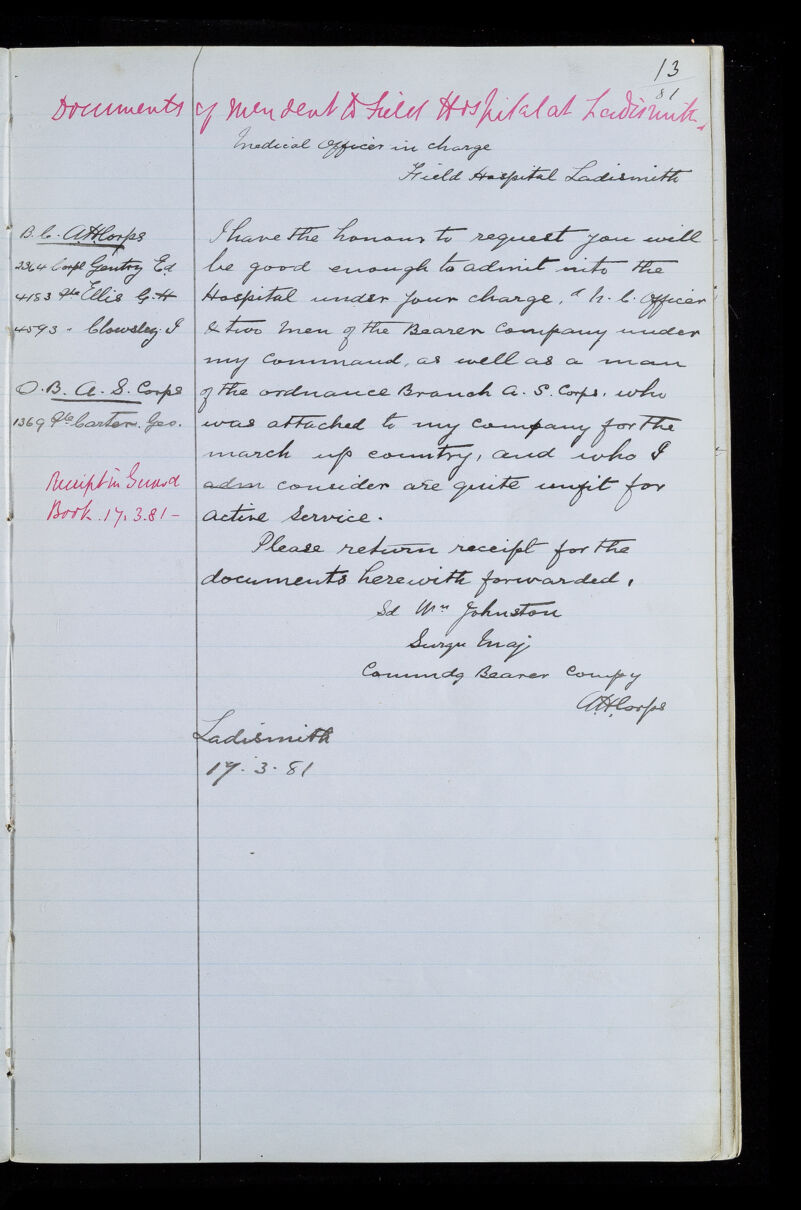 13
81
Documents of men sent to Field Hospital at Ladismith.
Medical Officer in charge
Field Hospital Ladismith
B. C. A.H.Corps
2364 Corpl Gentry Ed
4153 Pte Ellis G. H
4593 " Clowsley. J
O. B. A. S. Corps
1369 Pte Carter. Geo.
Receipt in Guard
Book. 17. 3. 81 -
I have the honour to request you will
be good enough to admit into the
Hospital under your charge, a N. C. Officer
& two men of the Bearer Company under
my command, as well as a man
of the ordnance Branch A. S. Corps. who
was attached to my company for the
march up country, and who I
adm consider are quite unfit for
active service.
Please return receipt for the
documents herewith forwarded,
Sd Wm Johnston
Surgn Maj
Commdg Bearer Compy
A.H.Corps
Ladismith
17. 3. 81